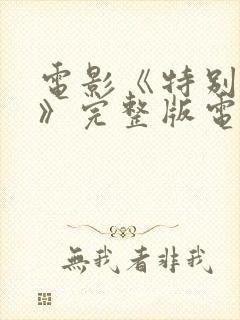 電影《特別
》完整版電
無我者非我